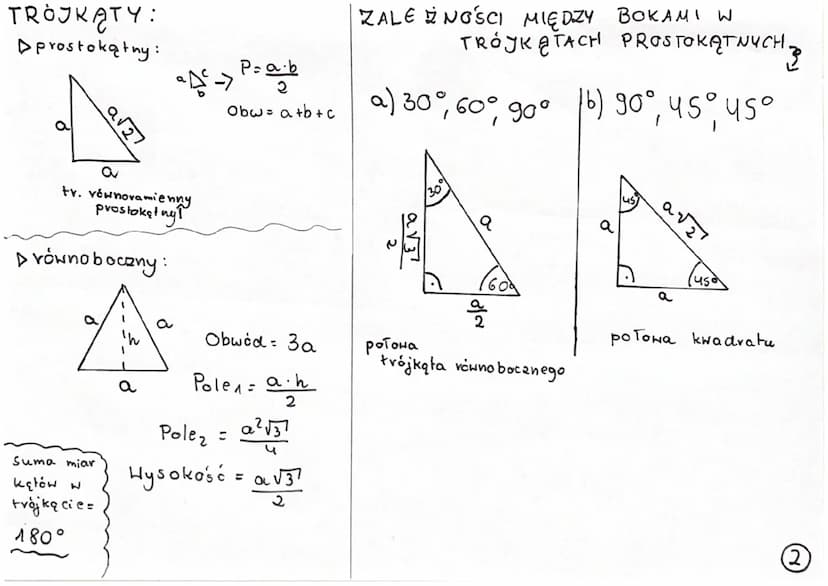 TRÓJKĄTY:
▷ prostokątny:
a
a√2
a
tr. równoramienny
prostokątny↑
a c
b
→ P = a·b
2
Obw = a+b+c
▷ równoboczny:
a
a
h
a
Obwód = 3a
Pole₁ = a·h
2
Pole₂ = a²√3
4
Wysokość = a√3
2
Suma miar
kątów w
trójkącie =
180°
ZALEŻNOŚCI MIĘDZY BOKAMI W
TRÓJKĄTACH PROSTOKĄTNYCH
a) 30°, 60°, 90°
30°
a√3
2
a
60°
a
2
połowa
trójkąta równobocznego
b) 90°, 45°, 45°
45°
a
a√2
45°
a
połowa kwadratu
2